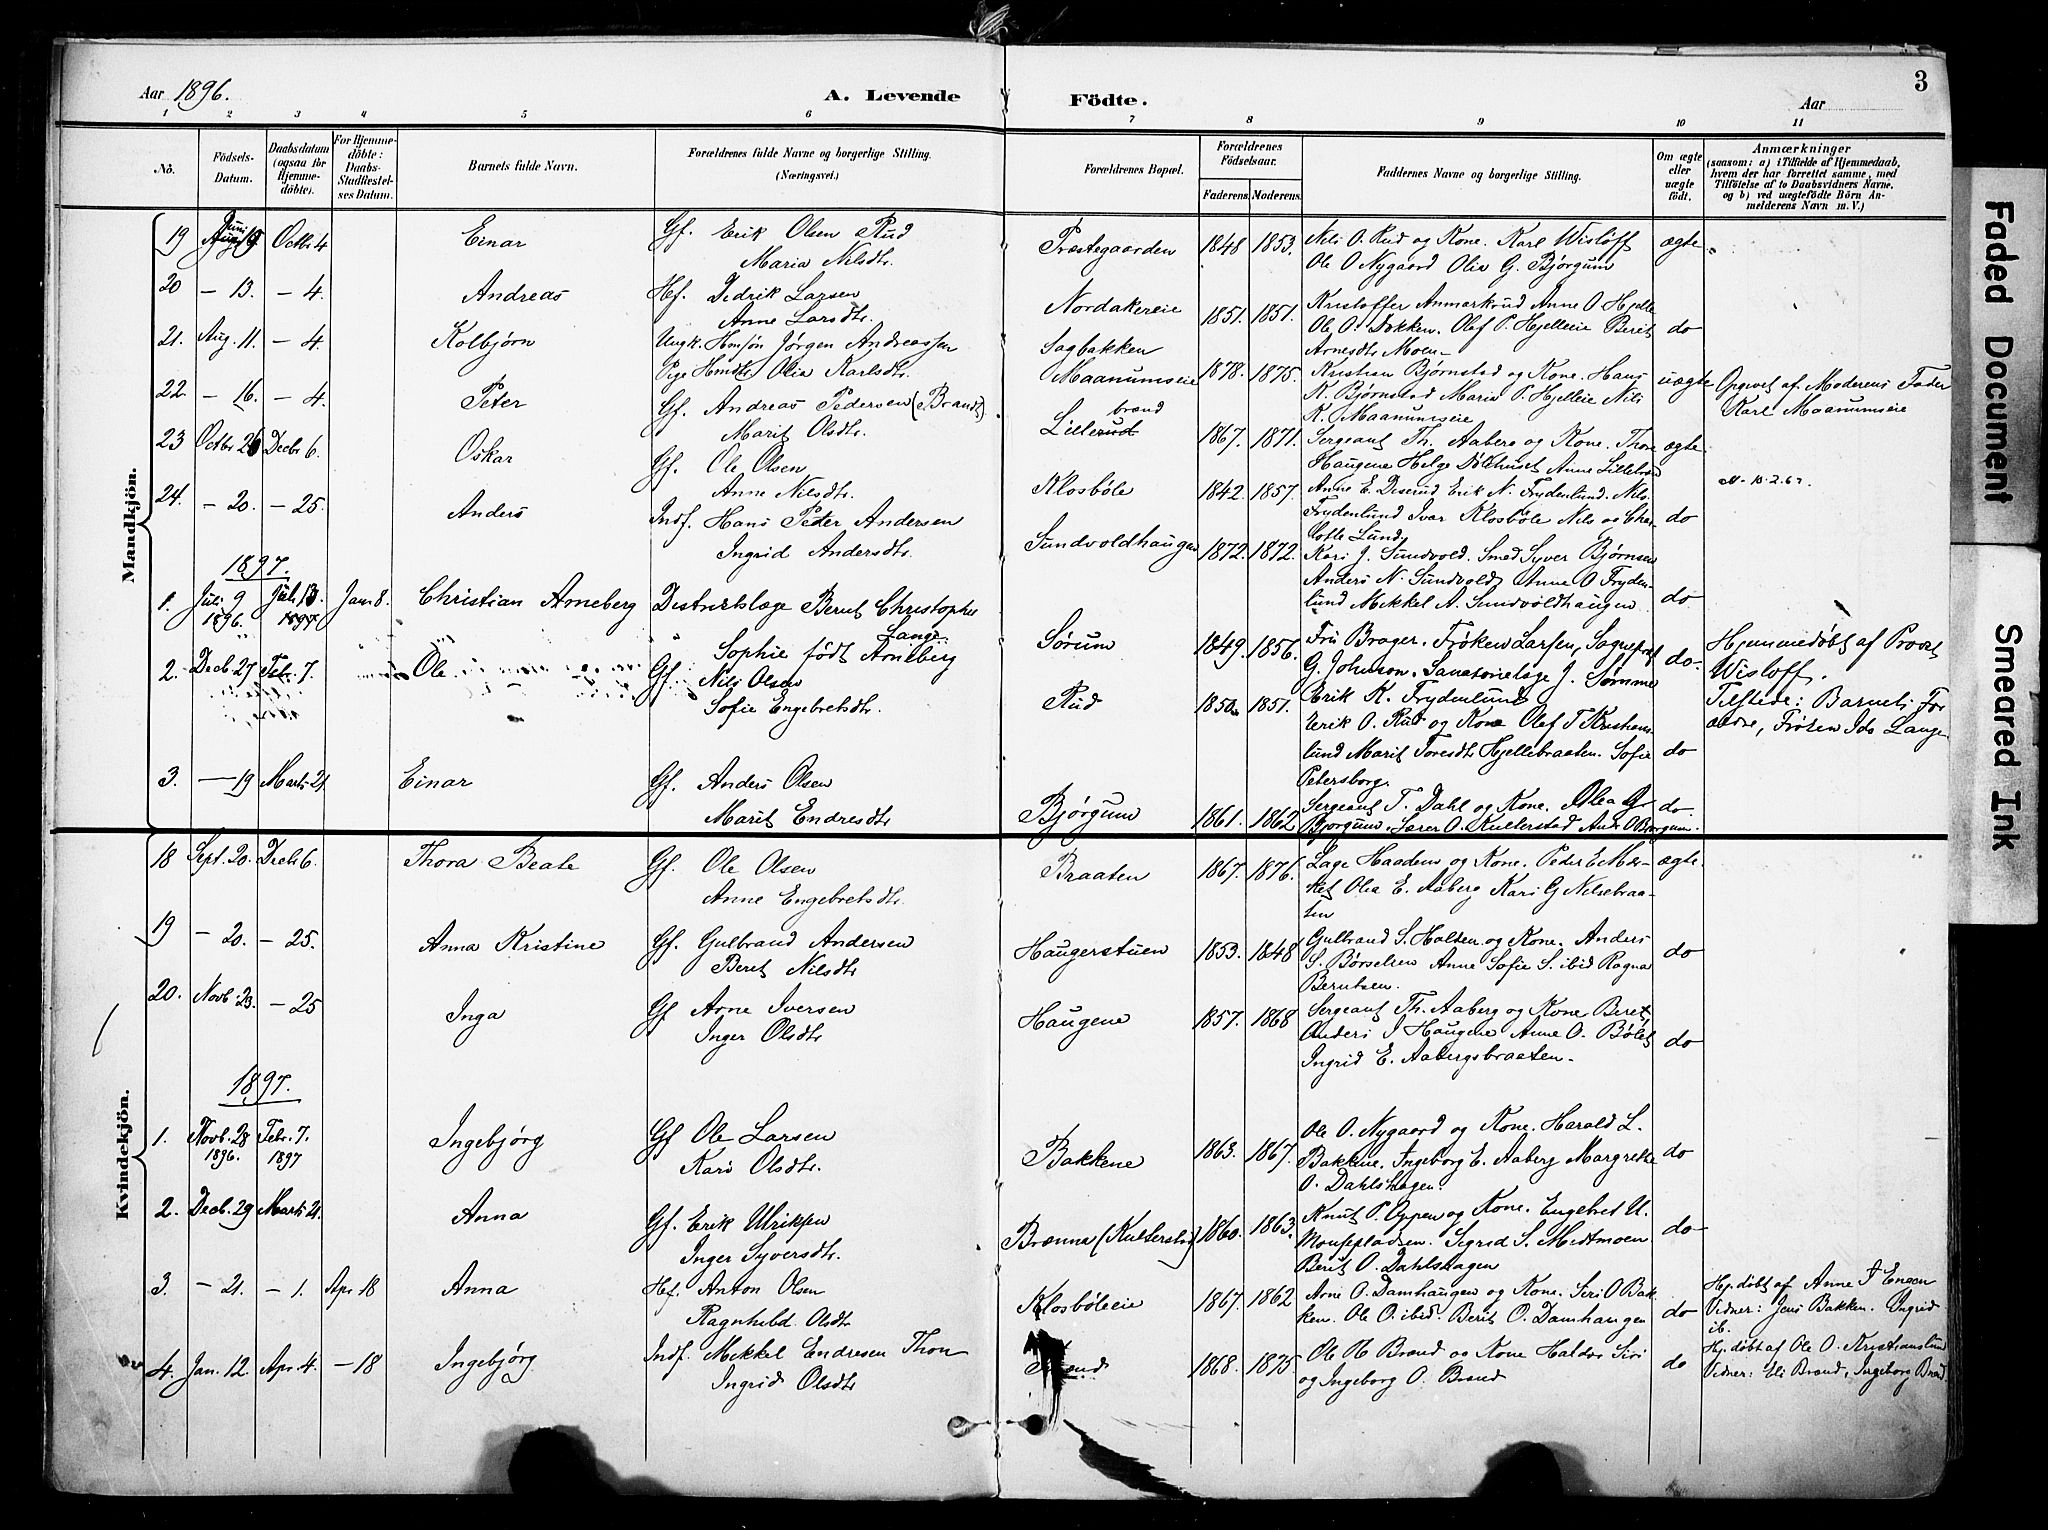 Aar 1896. A. Levende Födte. Aar 3
1 2 3 4 5 6 7 8 9 10 11
No. Födsels-Datum. Daabsdatum (ogsaa for Hjemmedöbte). For Hjemmedöbte: Daabs-Stadfæstelses Datum. Barnets fulde Navn. Forældrenes fulde Navne og borgerlige Stilling. (Næringsvei.) Forældrenes Bopæl. Forældrenes Födselsaar. Faderens. Moderens. Faddernes Navne og borgerlige Stilling. Om ægte eller uægte født. Anmærkninger (saasom: a) i Tilfælde af Hjemmedaab, hvem der har forrettet samme, med Tilföielse af to Daabsvidners Navne, og b) ved uægtefödte Börn Anmelderens Navn m. V.)
Mandkjön.
19 Juni Octbr 4 Einar Gf. Erik Olsen Rud
Maria Nilsdtr. Præstegaarden 1848 1853. Nils O. Rud og Kone. Karl Wisløff
Ole O Nygaard Olia G. Bjørgum ægte
20 — 13. — 4. Andreas Hf. Didrik Larsen
Anne Larsdtr. Nordakereie 1851. 1851. Kristoffer Anmarkrud Anne O Hjelle
Ole O. Dokken. Olaf P. Hjelleie Berit
Arnesdtr Moen do
21. Aug. 11. — 4. Kolbjørn Ungk. Jørgen Andreassen
Pige Olia Karlsdtr. Sagbakken
Maanumseie 1878. 1875. Kristian Bjørnstad og Kone. Hans
K. Bjørnstad Maria P. Hjelleie Nils
K. Maanumseie uægte Opgivet af Moderens Fader
Karl Maanumseie
22 — 16. — 4. Peter Gf. Andreas Pedersen (Brandt)
Marit Olsdtr. Lillebrænd 1867. 1871. Sergeant Th. Aaberg og Kone. Thore
Haugene Helge Dölehuset Anne Lillebrænd ægte
23 Octbr 26 Decbr 6. Oskar Gf. Ole Olsen
Anne Nilsdtr. Klosböle 1842. 1857. Anne E. Diserud Erik N. Frydenlund. Nils
Frydenlund Ivar Klosböle Nils og Charlotte Lund. do
24. — 20. — 25. Anders Indf. Hans Peter Andersen
Ingrid Andersdtr. Sundvoldhaugen 1872. 1872. Kari J. Sundvold. Smed Syver Bjørnsen
Anders N. Sundvold Anne O Frydenlund Mikkel A. Sundvoldhaugen. do
1897.
1. Juli 9 1896. Juli 13 1897 Jan 8. Christian Arneberg Distriktslæge Bernt Christopher
Lange.
Sophie født Arneberg Sørum 1849. 1856. Fru Brager. Frøken Larsen, Sagnefører
G. Johnson. Sanatorielæge J. Sømme do. Hjemmedøbt af Provst
Wisløff.
Tilstede: Barnets Forældre, Frøken Ida Lange
2. Decb. 27 Febr. 7. Ole Gf. Nils Olsen
Sofie Engebretsdtr. Rud 1850. 1851. Erik K. Frydenlund
Erik O. Rud og Kone Olaf T Kristianslund Marit Toresdtr Hjellebraaten. Sofie
Petersborg. do
3. — 19 Marts 21 Einar Gf. Anders Olsen
Marit Endresdtr Bjørgum 1861. 1862 Sergeant T. Dahl og Kone. Olea G.
Bjørgum. O. Kulterstad And. O Bjørgum. do
Kvindekjön.
18 Sept. 20. Decb 6. Thora Beate Gf. Ole Olsen
Anne Engebretsdtr. Braaten 1867. 1876. Læge Haadem og Kone. Peder E.
Olia E. Aaberg Kari G Nilsebraaten ægte
19 — 20. — 25. Anna Kristine Gf. Gulbrand Andersen
Berit Nilsdtr Haugerstuen 1853. 1848 Gulbrand S. Holten og Kone. Anders
S. Børselren Anne Sofie S. ibid Ragna
Berntsen. do
20. Novb. 23. — 25 Inga Gf Arne Iversen
Inger Olsdtr Haugene 1857. 1868 Sergeant Th. Aaberg og Kone Berit
Anders I Haugene Anne O. Böle
Ingrid E. Aabergsbraaten. do
1897.
1. Novb. 28 1896. Febr. 7. 1897 Ingebjørg Gf Ole Larsen
Kari Olsdtr. Bakkene 1863. 1867. Ole O. Nygaard og Kone. Harald L.
Bakkene. Ingeborg E. Aaberg Margrethe
O. Dahlshagen. do
2. Decb. 29 Marts 21. Anna Gf. Erik Ulriksen
Inger Syversdtr. Brænna (Kulterstad) 1860. 1863. Knut P. Oppen og Kone. Engebret U.
Mouspladsen. Sigrid S. Midtmoen
Berit O. Dahlshagen do
3 — 21. — 1. Apr 18 Anna Hf. Anton Olsen
Ragnhild Olsdtr Klosböleeie 1867. 1862 Arne O. Damhaugen og Kone. Siri O Bakken. Ole O. ibid. Berit O. Damhaugen do Hj. döbt af Anne J Engen
Vidner: Jens Bakken. Ingrid
ib.
4. Jan. 12. Apr. 4. — 18 Ingebjørg Indf. Mikkel Endresen Thon
Ingrid Olsdtr Brænd 1868. 1875. Ole H Brænd og Kone Haldor Siri
og Ingeborg O. Brænd do Hj. døbt af Ole O. Kristianslund
Vidner: Eli Brænd, Ingeborg Brænd.
Faded Document
Smeared Ink